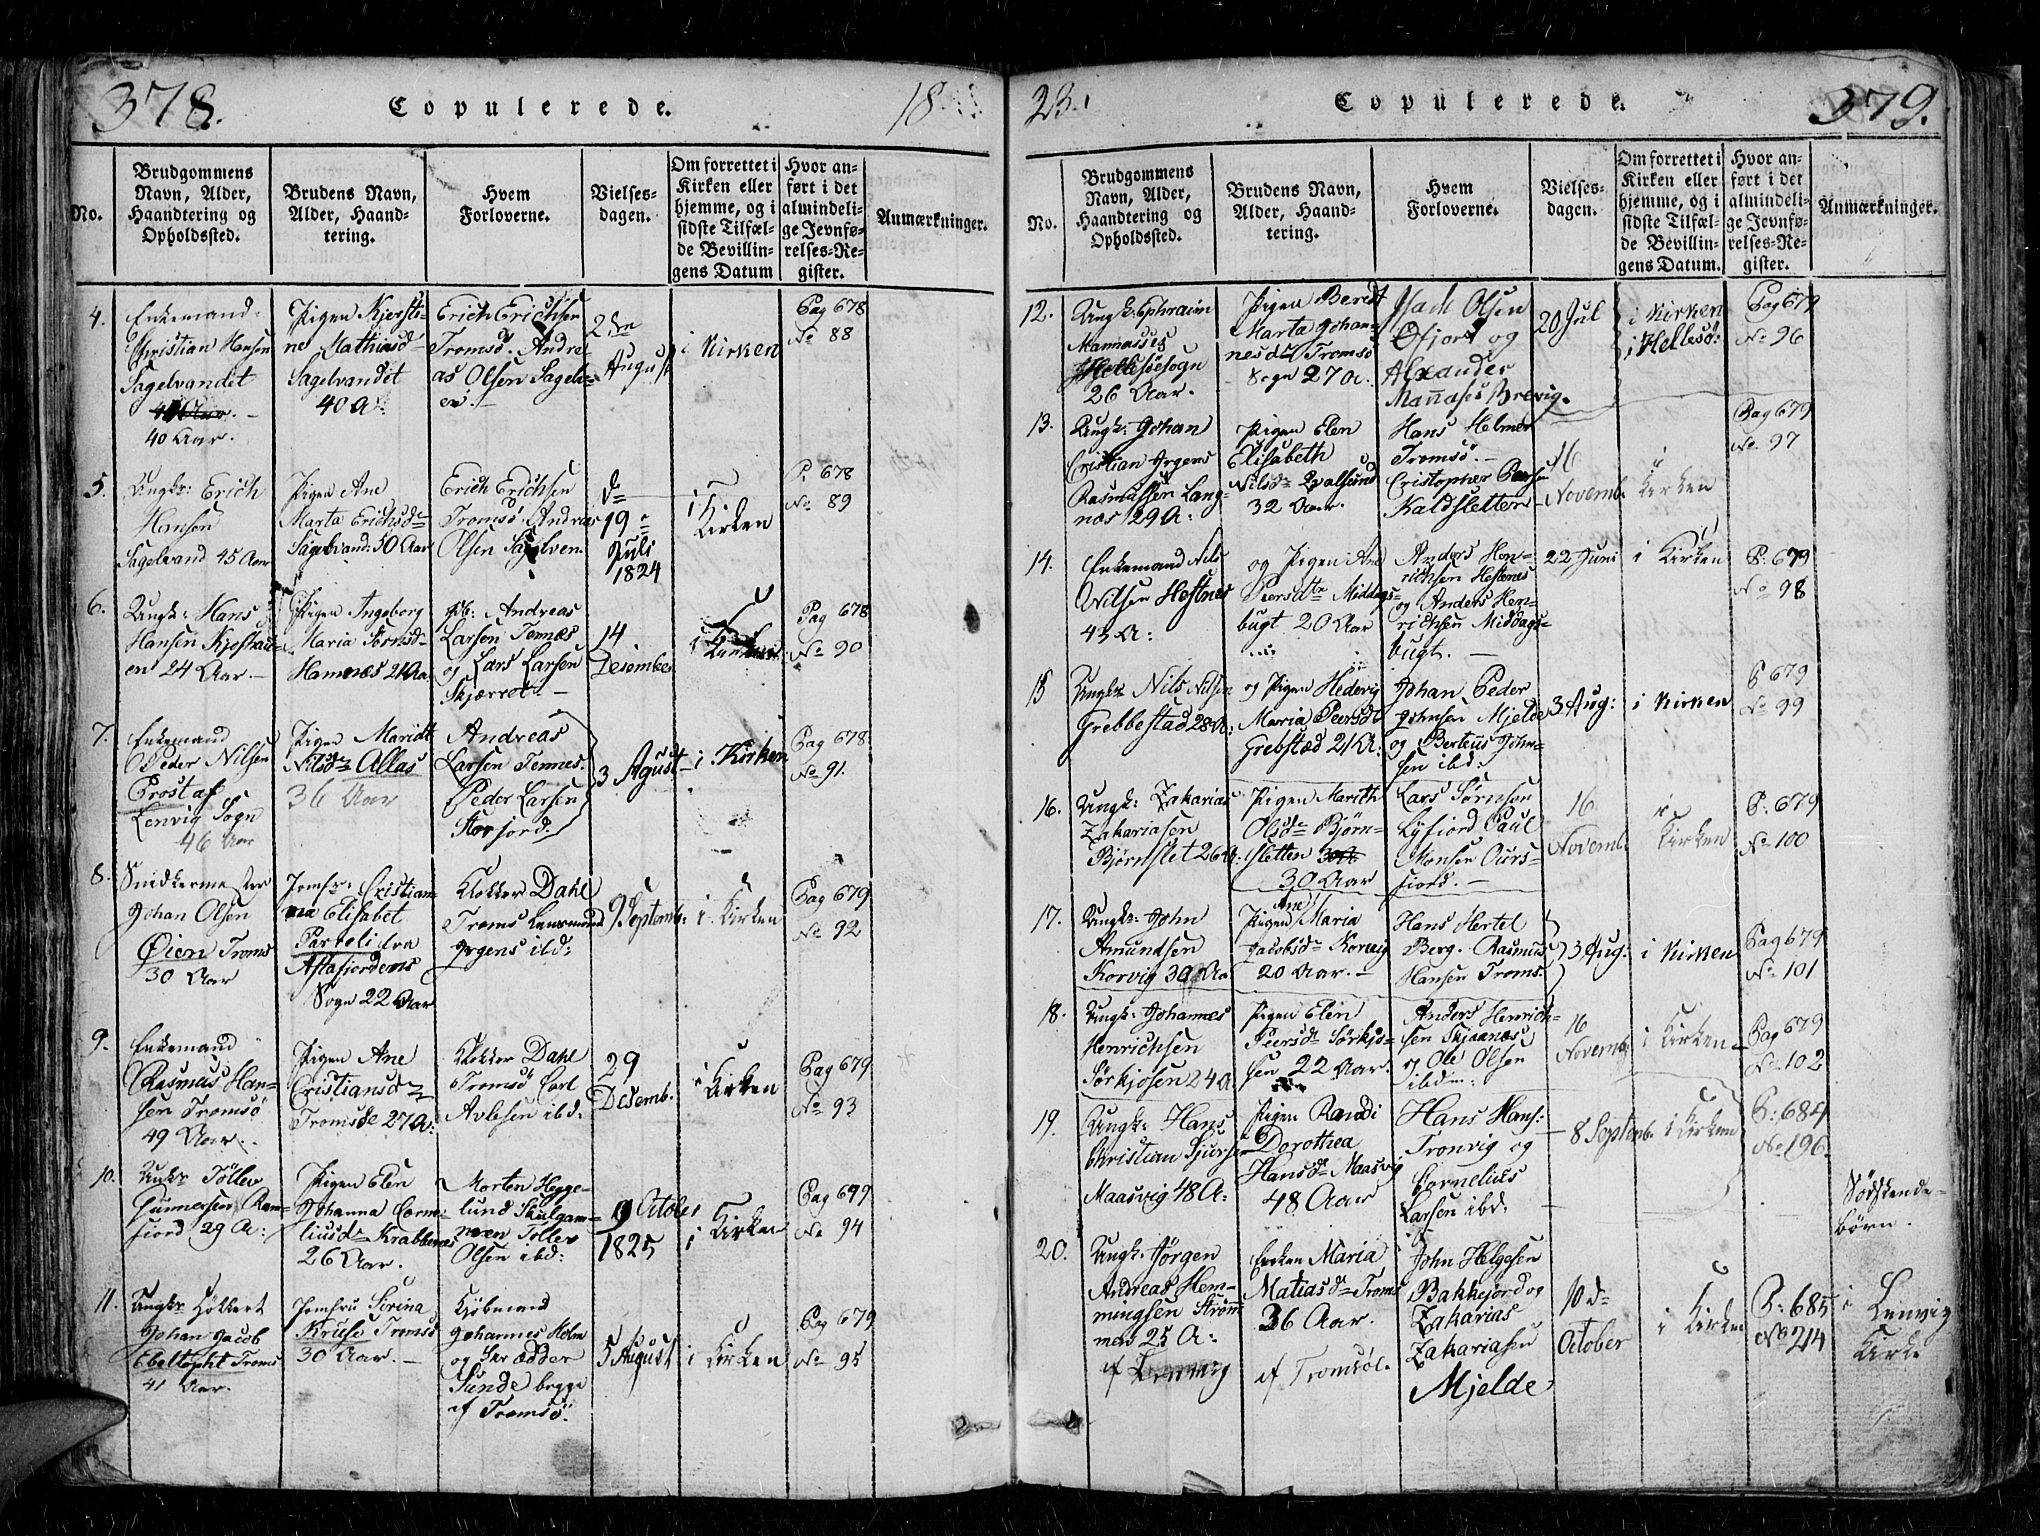 378.
Copulerede.
18
No.
Brudgommens
Navn, Alder,
Haandtering og
Opholdssted.
Brudens Navn,
Alder, Haand-
tering.
Hvem
Forloverne.
Vielses-
dagen.
Om forrettet i
Kirken eller
hjemme, og i
sidste Tilfæl-
de Bevillin-
gens Datum
Hvor an-
ført i det
almindeli-
ge Jevnfø-
relses-Re-
gister.
Anmærkninger.
4.
Enkemand
Christian Hansen
Sagelvandet
40 Aar.
Pigen Kjersti-
ne Mathisd
Sagelvandet
40 A:
Erich Erichsen
Tromsø. Andre
as Olsen Sagelv-
en.
2den
August
i Kirken
Pag 678
No 88
5.
Ungk: Erich
Hansen
Sagelvand 45 Aar
Pigen Ane
Marta Erichsd
Sagelvand: 50 Aar
Erich Erichsen
Tromsø. Andreas
Olsen Sagelven.
d
19
Juli
1824
i
Kirken
P. 678
No 89
6.
Ungk: Hans
Hansen
en 24 Aar.
Pigen Ingeborg
Maria
Hamnæs 21 Aa.
Andreas
Larsen Tennæs
og Lars Larsen
14
Desember
i
Pag 678
No 90
7.
Enkemand
Peder Nilsen
Lenvig Sogn
46 Aar
Pigen Maridt
Nilsdr
36 Aar
Andreas
Larsen Tennes.
Peder Larsen
Storfjord.
3 Agust
i Kirken
Pag 678
No 91.
8.
Snidkermester
Johan Olsen
Øien Troms
30 Aar
Jomfr: Cristian-
na Elisabet
fra
Astafjordens
Sogn 22 Aar
Klokker Dahl
Troms
Jrgens ibd:
9 Septemb:
i Kirken
Pag 679
No 92
9.
Enkemand
Rasmus Han-
sen Tromsø
49 Aar.
Pigen Ane
Cristiansd
27 A:
Klokker Dahl
Tromsø Carl
ibd:
29
Desemb.
i
Kirken
Pag 679
No 93
10.
Ungk: Tøllev
Gunnersen Ram-
fiord 29 A:
Pigen Elen
Johanna Corne-
liusd Krabbenæs
26 Aar.
Morten Hegge-
lund
Tøllev
Olsen ibd:
9 October
1825
i
Kirken
Pag 679
No 94
11.
Ungk:
Johan Jacob
Ebeltopht Troms
41 Aar.
Jomfru Sirina
Kruse Tromsø
30 Aar.
Kjøbmand
Johannes Holm
og Skrædder
Sunde begge
af Tromsø.
5 August
i
Kirken
Pag 679
No 95
23.
Copulerede.
379.
No.
Brudgommens
Navn, Alder,
Haandtering og
Opholdssted.
Brudens Navn,
Alder, Haand-
tering.
Hvem
Forloverne.
Vielses-
dagen.
Om forrettet i
Kirken eller
hjemme, og i
sidste Tilfæl-
de Bevillin-
gens Datum.
Hvor an-
ført i det
almindeli-
ge Jevnfø-
relses-Re-
gister.
Anmærkninger.
12.
Ungk: Ephraim
Mannasses
26 Aar.
Pigen Beret
Marta Johan-
nesd Tromsø
Sogn 27 A.
Isach Olsen
Ofjord og
Alexander
Brevig.
20 Jul
i Kirken
i Hellesø:
Pag 679
No 96
13.
Ungk: Johan
Cristian Jrgens
Rasmussen Lang-
næs 29 A:
Pigen Elen
Elisabeth
Nilsd Qvalsund
32 Aar.
Hans Helmer
Tromsø.
Cristopher
Kaldsletten
16
Novemb.
i
Kirken
Pag 679
No 97
14.
Enkemand Nils
Nilsen Hestnes
43 A:
og Pigen Ane
Peersdtr Middags-
bugt 20 Aar
Anders Hen-
richsen Hestenes
og Anders Hen-
richsen Middags-
bugt.
22 Juni
i Kirken
P: 679
No 98
15
Ungk: Nils Nilsen
Grebbestad 28 A:
og Pigen Hedevig
Maria Peersd
Grebstad 21 A:
Johan Peder
Johnsen Mjelde
og Berteus John-
sen ibd:
3 Aug:
i Kirken
P 679
No 99
16.
Ungk: Zakarias
Zakariasen
Bjørnslet 26 A:
Pigen Marith
Olsd Bjørn-
sletten
30 Aar
Lars Sørnsen
Lyfiord Paul
Monsen Ours-
fiord.
16
Novemb
i
Kirken
P: 679
No 100
17.
Ungk: John
Amundsen
Korvig 30 Aa
Ane
Pigen Maria
Jacobsd Korvig
20 Aar.
Hans Hertel
Berg. Rasmus
Hansen Troms.
3 Aug:
i Kirken
Pag 679
No 101
18.
Ungk: Johannes
Henrichsen
Sørkjosen 24 A
Pigen Elen
Peersd Sørkjo-
sen 22 Aar.
Anders Henrich-
sen Skjaanæs
og Ole Olsen
ibdm:
16
Novemb
i Kirken
Pag 679
No 102
19.
Ungk: Hans
Christian
Maasvig 48 A:
Pigen Randi
Dorothea
Hansd Maasvig
48 Aar
Hans Hans:
Tronvig og
Cornelius
Larsen ibd.
8 Septemb.
i Kirken
P: 684
No 196.
Sødskende-
børn.
20.
Ungk: Jørgen
Andreas Hem-
mingsen Strøm-
men 25 A:
af
Enken Maria
Matiasd Troms
36 Aar.
af Tromsøe.
John Helgesen
Bakkejord og
Zakarias
Zakariasen
Mjelde.
10 d
October
i Kirken
P: 685
No 214
i Lenvig
Kirke